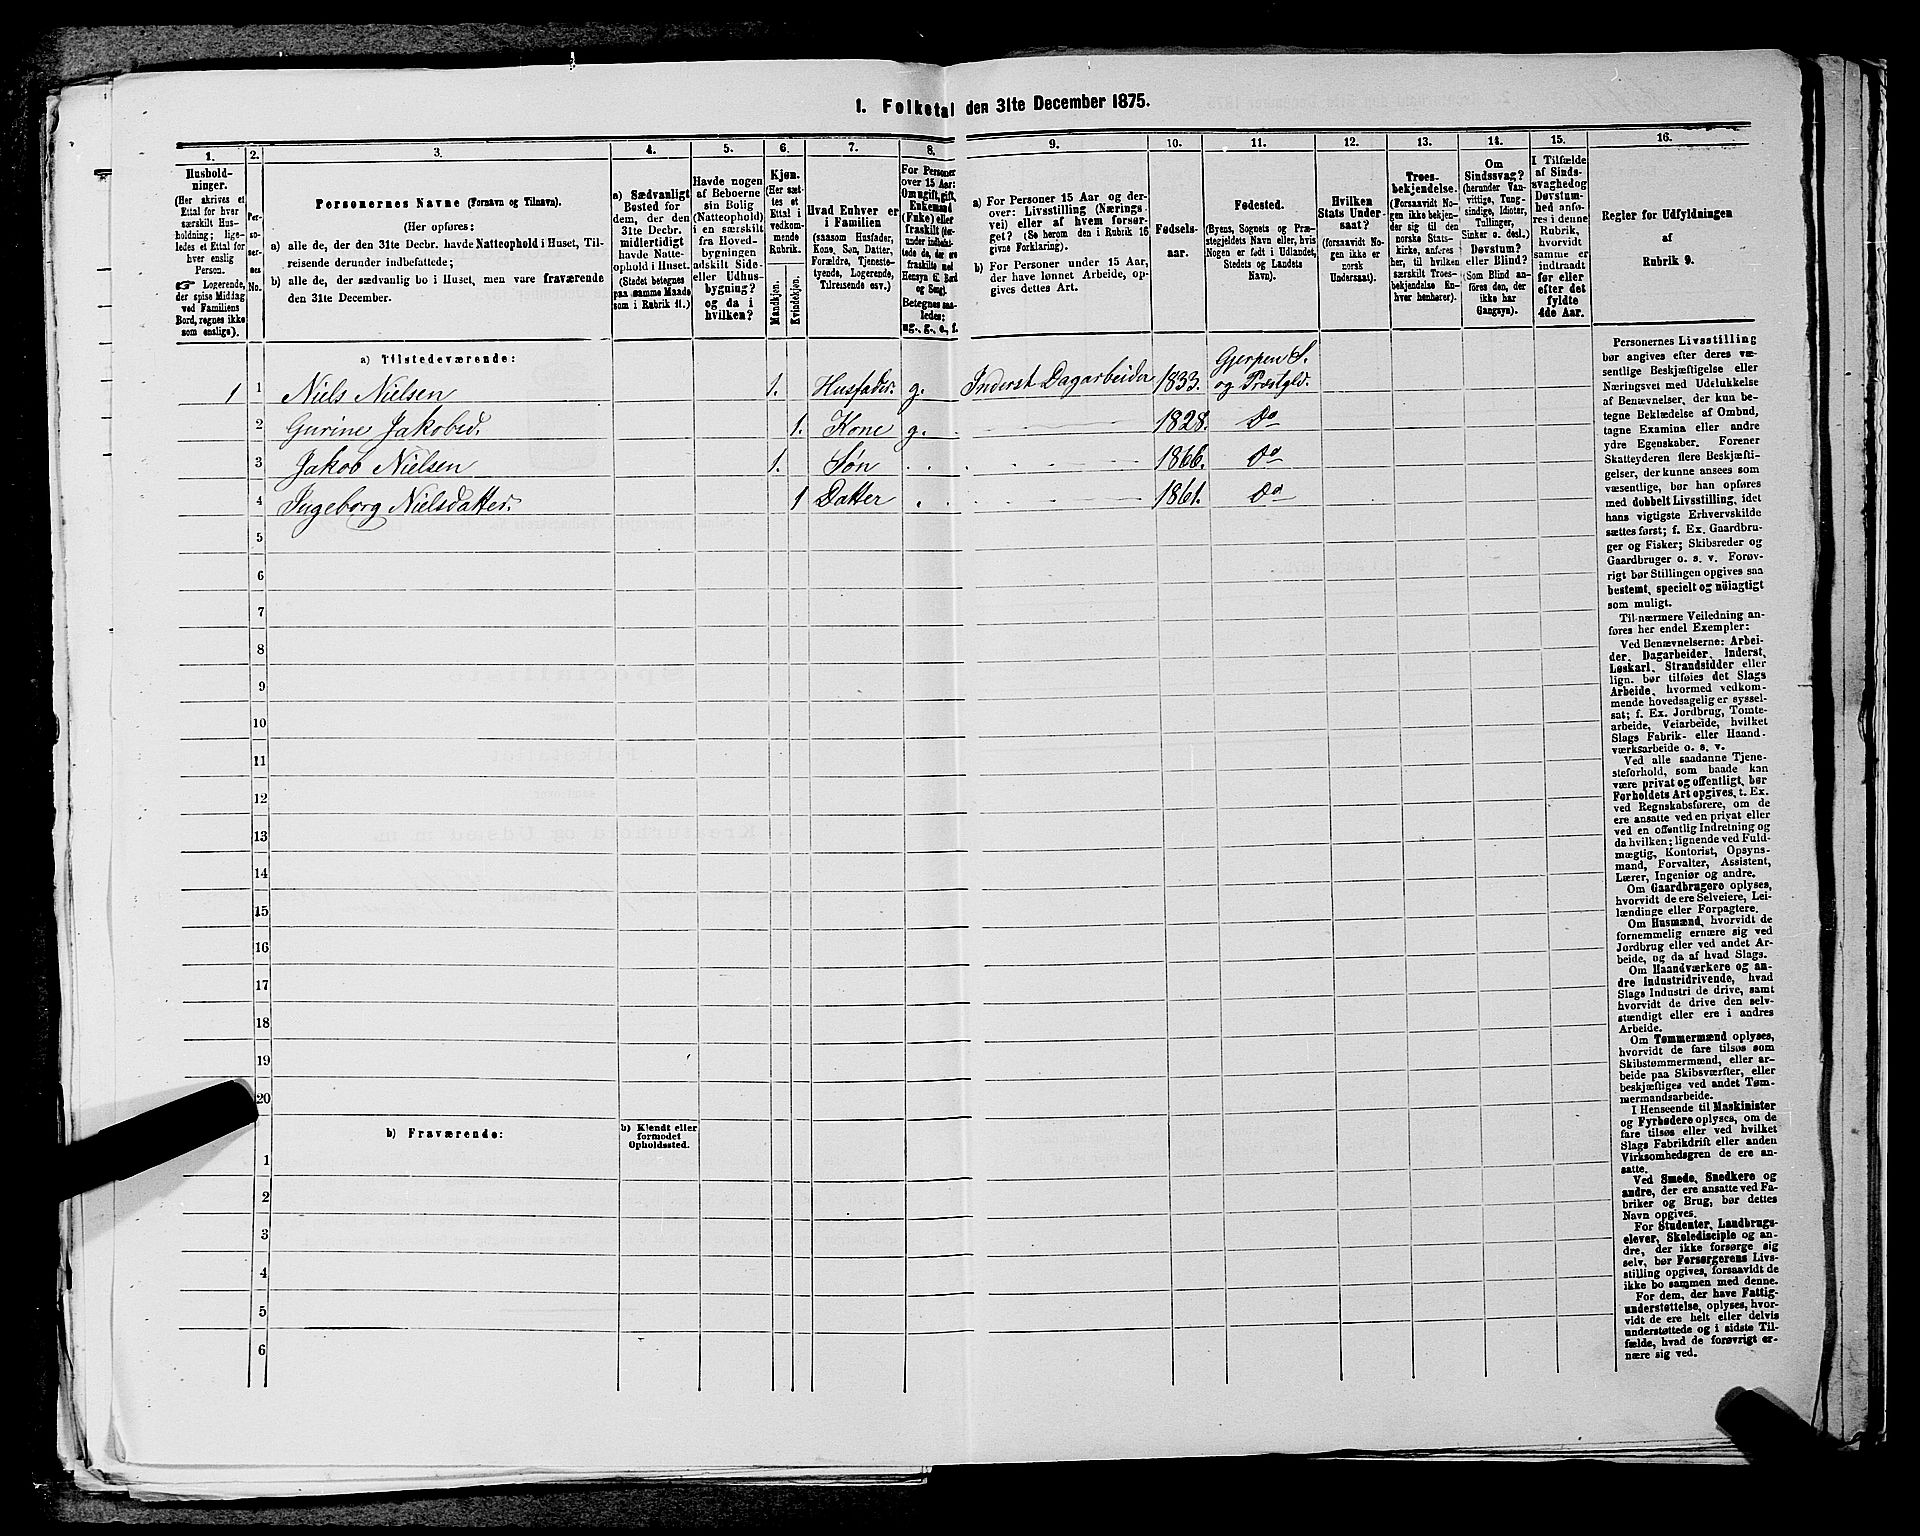 1. Folketal den 31te December 1875.
1. 2. 3. 4. 5. 6. 7. 8. 9. 10. 11. 12. 13. 14. 15. 16.
Hushold-
ninger.
(Her skrives et
Ettal for hver
særskilt Hus-
holdning; lige-
ledes et Ettal for
hver enslig
Person.
☞ Logerende,
der spise Middag
ved Familiens
Bord, regnes ikke
som enslige).
Per-
so-
ner-
nes
No.
Personernes Navne (Fornavn og Tilnavn).
(Her opføres:
a) alle de, der den 31te Decbr. havde Natteophold i Huset, Til-
reisende derunder indbefattede;
b) alle de, der sædvanlig bo i Huset, men vare fraværende
den 31te December.
a) Sædvanligt
Bosted for
dem, der den
31te Decbr.
midlertidigt
havde Natte-
ophold i Huset.
(Stedet betegnes
paa samme Maade
som i Rubrik 11.)
Havde nogen
af Beboerne
sin Bolig
(Natteophold)
i en særskilt
fra Hoved-
bygningen
adskilt Side-
eller Udhus-
bygning?
og da i
hvilken?
Kjøn.
(Her sæt-
tes et
Ettal i
vedkom-
mende
Rubrik.
Mandkjøn.
Kvindekjøn.
Hvad Enhver er
i Familien
(saasom Husfader,
Kone, Søn, Datter,
Forældre, Tjeneste-
tyende, Logerende,
Tilreisende osv.)
For Personer
over 15 Aar:
Om ugift, gift,
Enkemand
(Enke) eller
fraskilt (der-
under indbefat-
tede de, der ere
fraskilte med
Hensyn til Bord
og Seng).
Betegnes saa-
ledes:
ug., g., e., f.
a) For Personer 15 Aar og der-
over: Livsstilling (Nærings-
vei) eller af hvem forsør-
get? (Se herom den i Rubrik 16
givne Forklaring).
b) For Personer under 15 Aar,
der have lønnet Arbeide, op-
gives dettes Art.
Fødsels-
aar.
Fødested.
(Byens, Sognets og Præ-
stegjeldets Navn eller, hvis
Nogen er født i Udlandet,
Stedets og Landets
Navn).
Hvilken
Stats Under-
saat?
(forsaavidt No-
gen ikke er
norsk
Undersaat).
Troes-
bekjendelse.
(Forsaavidt No-
gen ikke bekjen-
der sig til den
norske Stats-
kirke, anfø-
res, til hvilken
særskilt Troes-
bekjendelse En-
hver henhører).
Om
Sindssvag?
(herunder Van-
vittige, Tung-
sindige, Idioter,
Tullinger,
Sinker o. desl.)
Døvstum?
eller Blind?
(Som Blind an-
føres den, der
ikke har
Gangsyn).
I Tilfælde
af Sinds-
svaghed og
Døvstum-
hed anfø-
res i denne
Rubrik,
hvorvidt
samme er
indtraadt
før eller
efter det
fyldte
4de Aar.
Regler for Udfyldningen
af
Rubrik 9.
a) Tilstedeværende:
1 1 Niels Nielsen 1. Husfader. g. Inderst Dagarbeider 1833. Gjerpen S.
og Præstgld.
2 Gurine Jakobsd. 1. Kone g. 1828. Do
3 Jakob Nielsen 1. Søn 1866. Do
4 Ingeborg Nielsdatter. 1 Datter 1861. Do
5
6
7
8
9
10
11
12
13
14
15
16
17
18
19
20
b) Fraværende:
b) Kjendt eller
formodet
Opholdssted.
1
2
3
4
5
6
Personernes Livsstilling
bør angives efter deres væ-
sentlige Beskjæftigelse eller
Næringsvei med Udelukkelse
af Benævnelser, der kun be-
tegne Beklædelse af Ombud,
tagne Examina eller andre
ydre Egenskaber. Forener
Skatteyderen flere Beskjæfti-
gelser, der kunne ansees som
væsentlige, bør han opføres
med dobbelt Livsstilling, idet
hans vigtigste Erhvervskilde
sættes først; f. Ex. Gaardbru-
ger og Fisker; Skibsreder og
Gaardbruger o. s. v. Forøv-
rigt bør Stillingen opgives saa
bestemt, specielt og nøiagtigt
som muligt.
Til nærmere Veiledning an-
føres her endel Exempler:
Ved Benævnelserne: Arbei-
der, Dagarbeider, Inderst,
Løskarl, Strandsidder eller
lign. bør tilføies det Slags
Arbeide, hvormed vedkom-
mende hovedsagelig er syssel-
sat; f. Ex. Jordbrug, Tomte-
arbeide, Veiarbeide, hvilket
Slags Fabrik- eller Haand-
værksarbeide o. s. v.
Ved alle saadanne Tjene-
steforhold, som baade kan
være privat og offentligt, bør
Forholdets Art opgives, t. Ex.
ved Regnskabsførere, om de
ere ansatte ved en privat eller
ved en offentlig Indretning og
da hvilken; lignende ved Fuld-
mægtig, Kontorist, Opsyns-
mand, Forvalter, Assistent,
Lærer, Ingeniør og andre.
Om Gaardbrugere oplyses,
hvorvidt de ere Selveiere, Lei-
lændinge eller Forpagtere.
Om Husmænd, hvorvidt de
fornemmelig ernære sig ved
Jordbrug eller ved andet Ar-
beide, og da af hvad Slags.
Om Haandværkere og an-
dre Industridrivende, hvad
Slags Industri de drive, samt
hvorvidt de drive den selv-
stændigt eller ere i andres
Arbeide.
Om Tømmermænd oplyses,
hvorvidt de fare tilsøs som
Skibstømmermænd, eller ar-
beide paa Skibsværfter, eller
beskjæftiges ved andet Tøm-
mermandsarbeide.
I Henseende til Maskinister
og Fyrbødere oplyses, om de
fare tilsøs eller ved hvilket
Slags Fabrikdrift eller anden
Virksomhedsgren de ere an-
satte.
Ved Smede, Snedkere og
andre, der ere ansatte ved Fa-
briker og Brug, bør dettes
Navn opgives.
For Studenter, Landbrugs-
elever, Skoledisciple og an-
dre, der ikke forsørge sig
selv, bør Forsørgerens Livs-
stilling opgives, forsaavidt de
ikke bo sammen med denne.
For dem, der have Fattig-
understøttelse, oplyses, hvor-
vidt de ere helt eller delvis
understøttede og i sidste Til-
fælde, hvad de forøvrigt er-
nære sig ved.